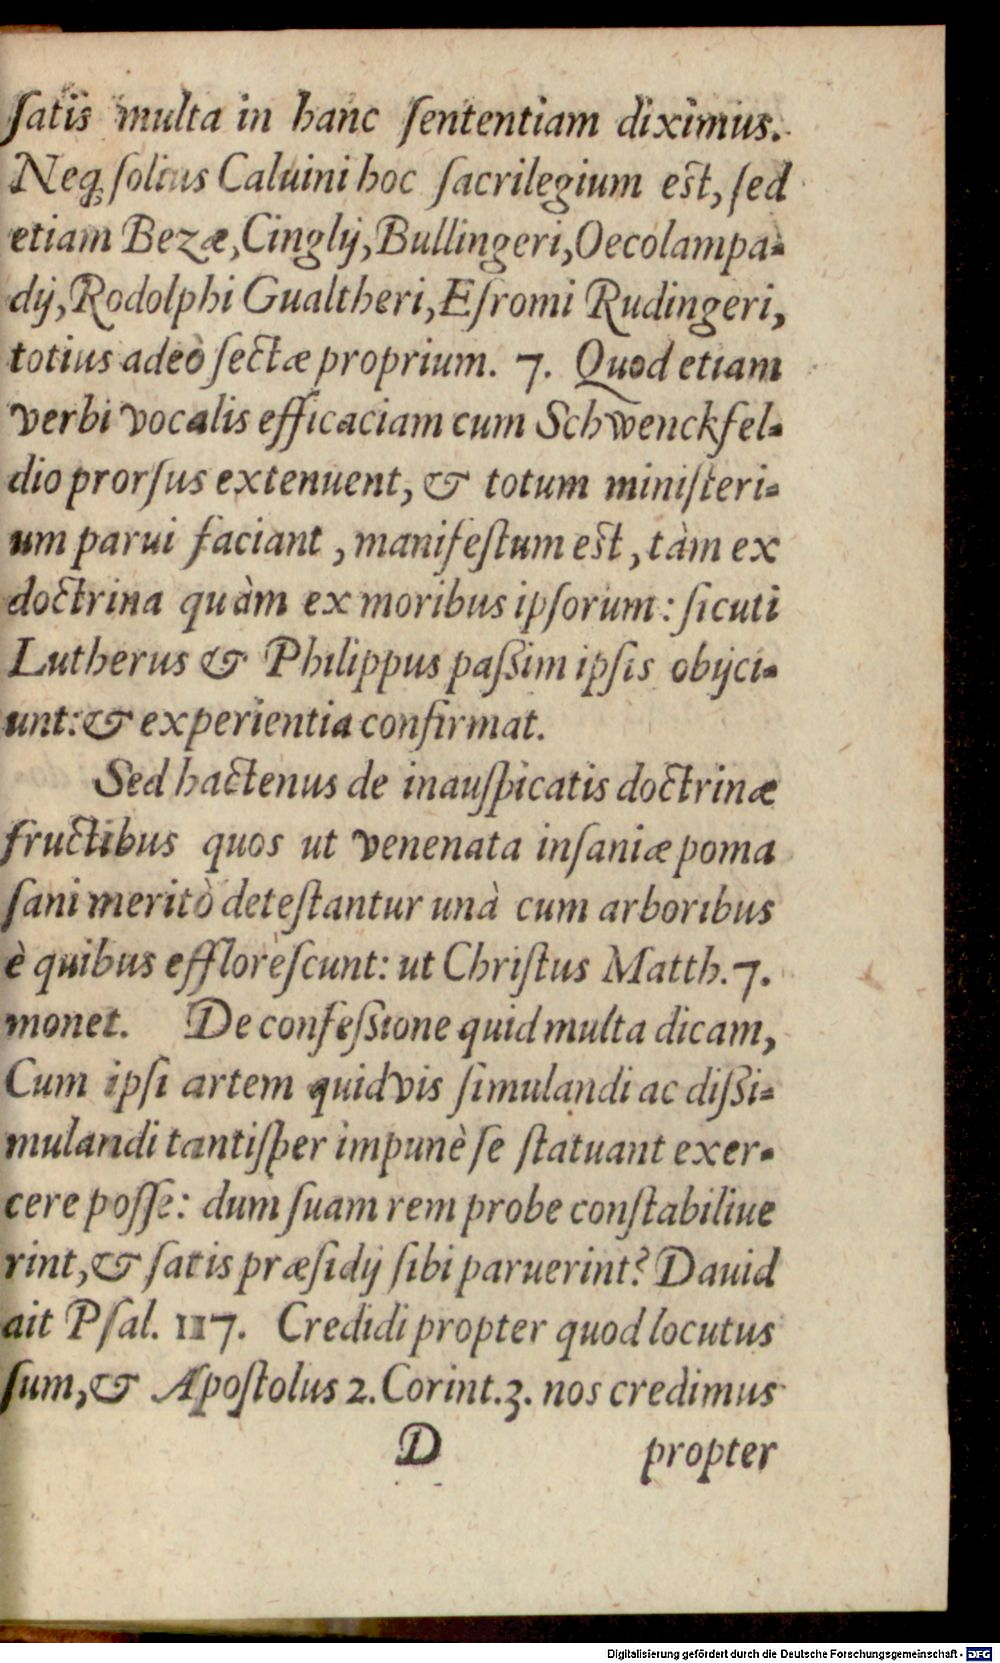 ſatis multa in hanc ſententiam diximus.
Neq́ſolius Caluini hoc ſacrilegium est, ſed
etiam Bezæ, Cinglij, Bullingeri, Oecolampa-
dij, Rodolphi Gualtheri, Eſromi Rudingeri,
totius adeò ſectæ proprium. 7. Quod etiam
verbi vocalis efficaciam cum Schwenckfel-
dio prorſus extenuent, & totum miniſteri-
um parui faciant, manifeſtum est, tàm ex
doctrina quàm ex moribus ipſorum: ſicuti
Lutherus & Philippus paßim ipſis obijci-
unt: & experientia confirmat.
Sed hactenus de inauſpicatis doctrinæ
fructibus quos ut venenata inſaniæ poma
ſani meritò deteſtantur unà cum arboribus
è quibus effloreſcunt: ut Chriſtus Matth. 7.
monet. De confeßione quid multa dicam,
Cum ipſi artem quidvis ſimulandi ac dißi-
mulandi tantiſper impunè ſe ſtatuant exer-
cere poſſe: dum ſuam rem probe conſtabiliue
rint, & ſatis præſidij ſibi paruerint? Dauid
ait Pſal. 117. Credidi propter quod locutus
ſum, & Apoſtolus 2. Corint. 3. nos credimus
D propter
Digitalisierung gefördert durch die Deutsche Forschungsgemeinschaft - DFG